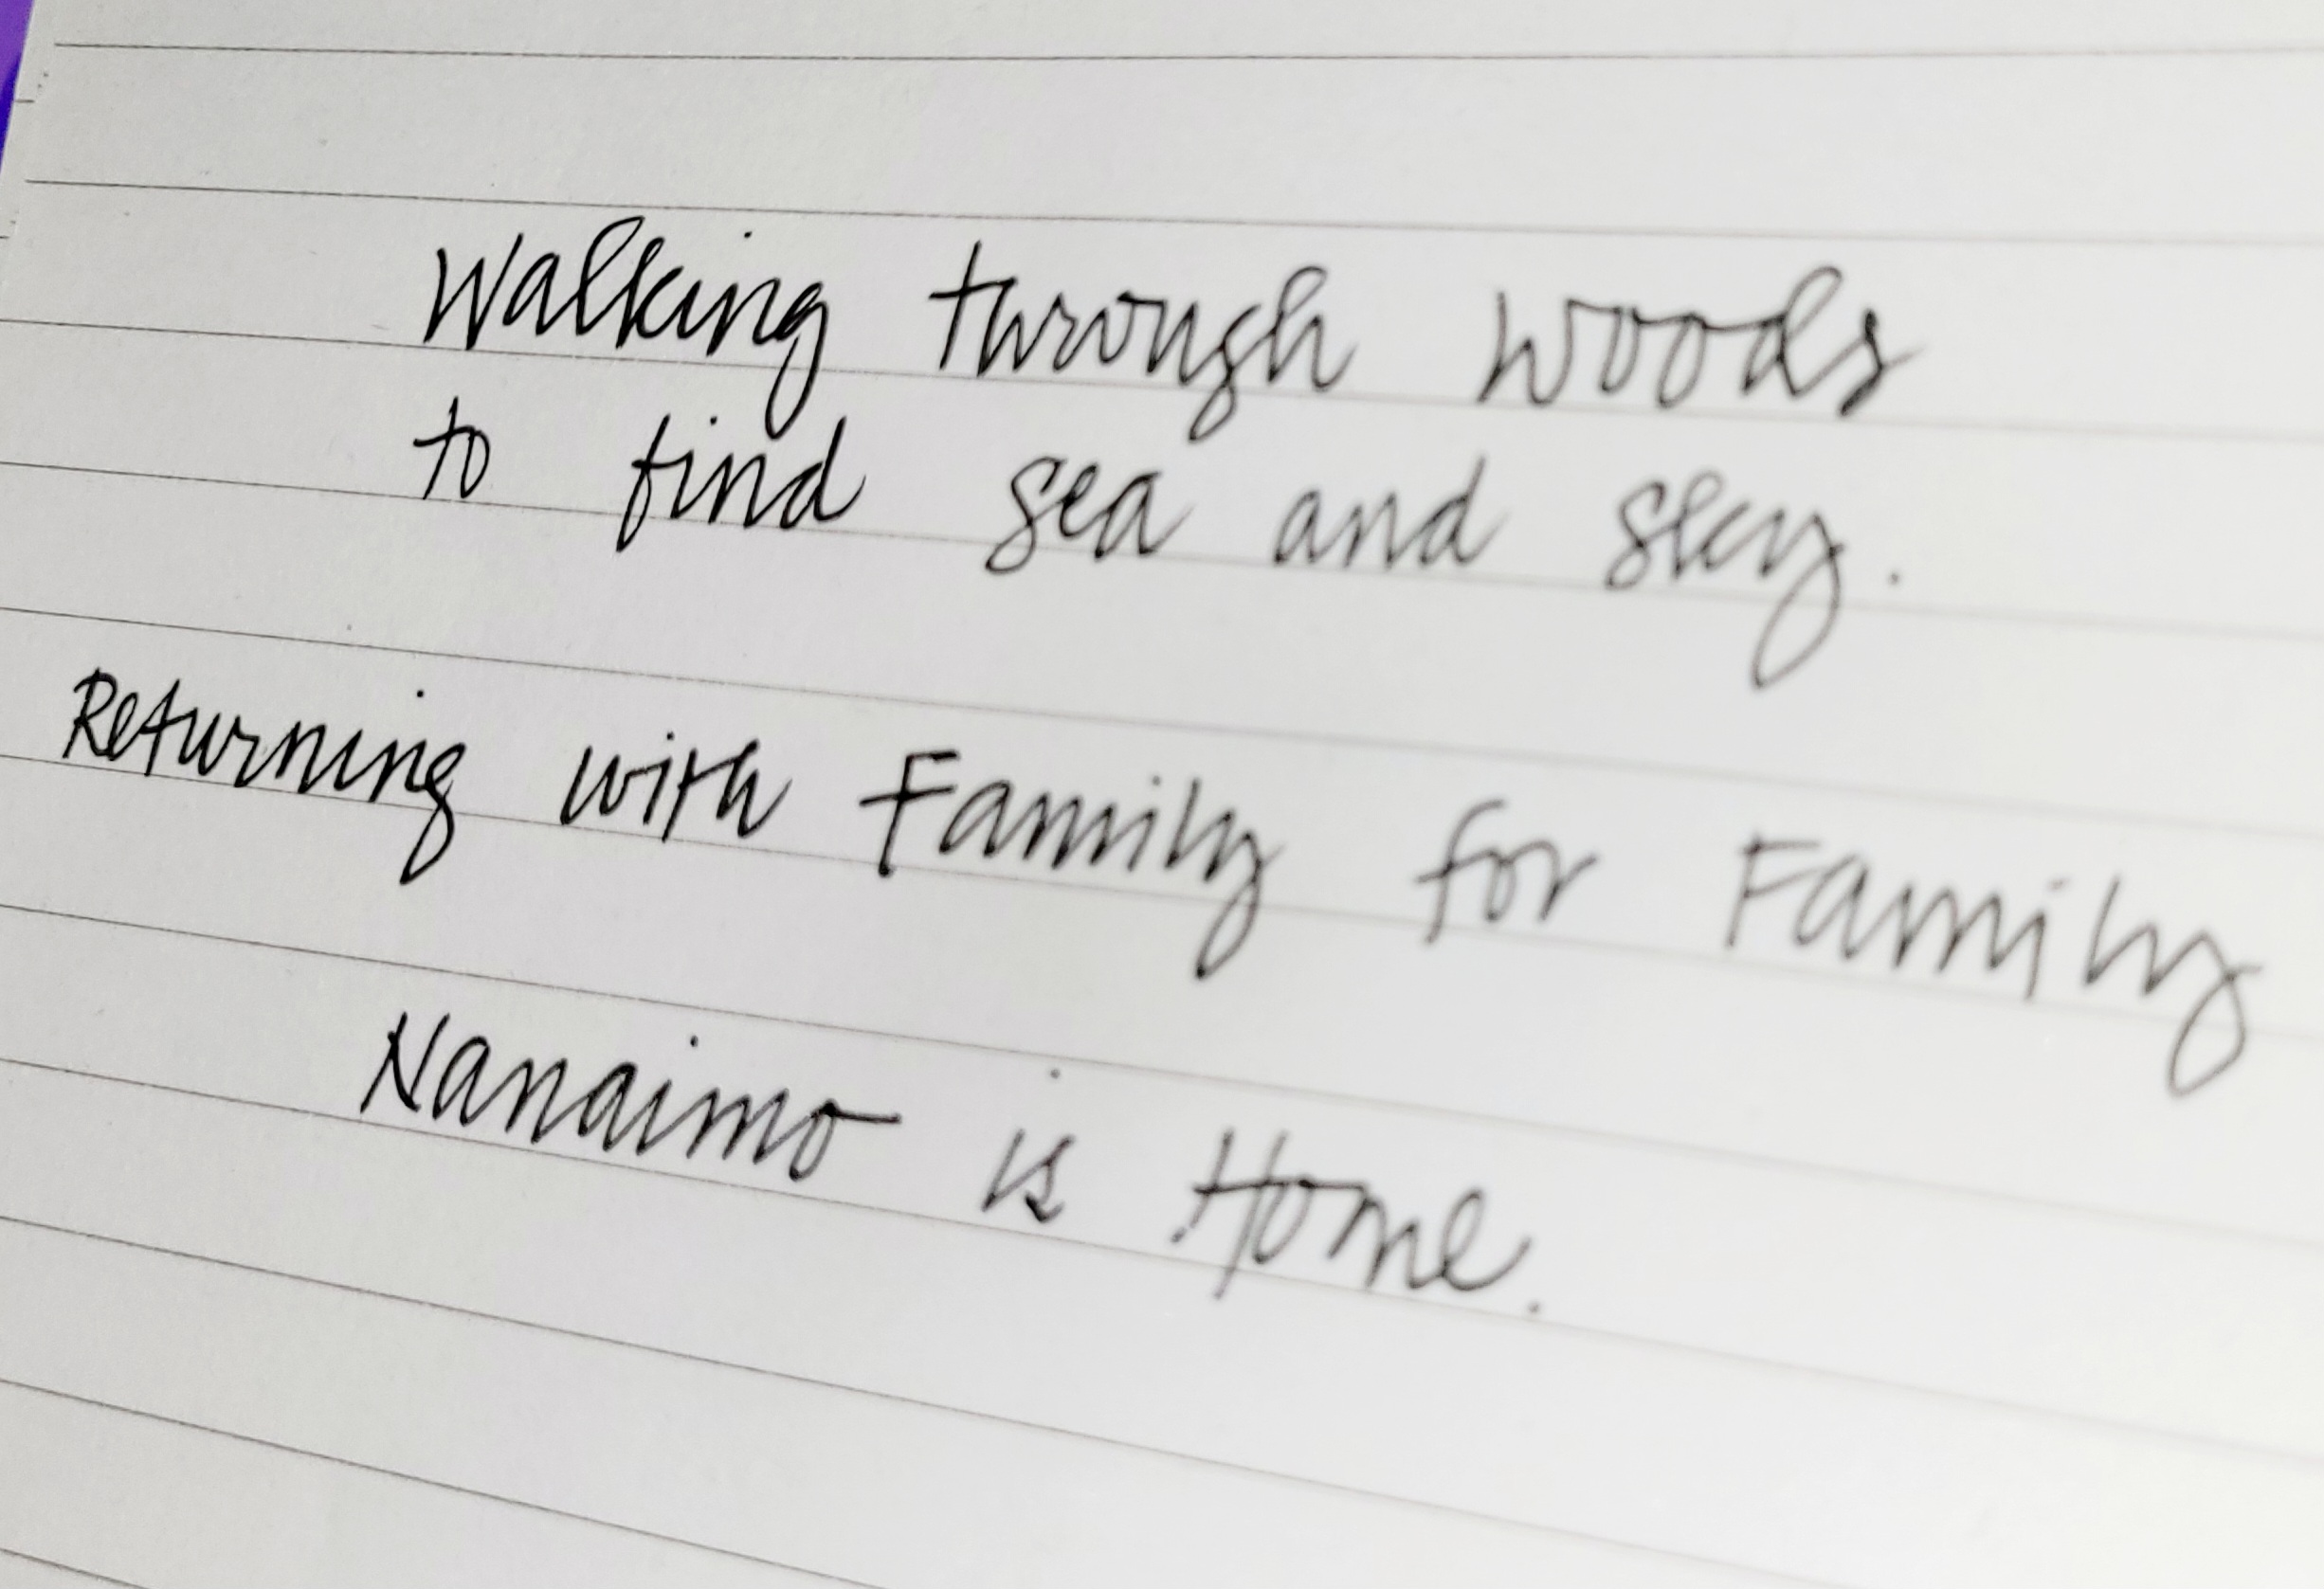 Walking through woods
to find sea and sky.
Returning with Family for Family
Nanaimo is Home.